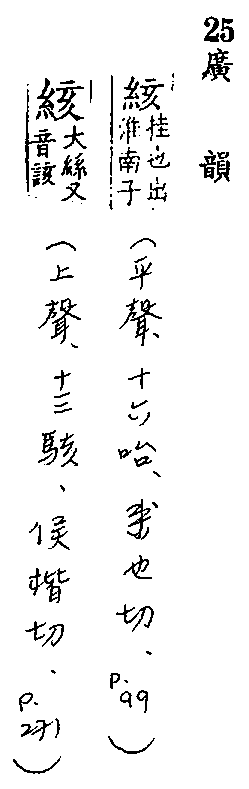 25
廣韻
絯 挂也出淮南子
(平聲、十六咍、也切、P.99)
絯 大絲又音該
(上聲、十三駭、侯楷切、P.271)